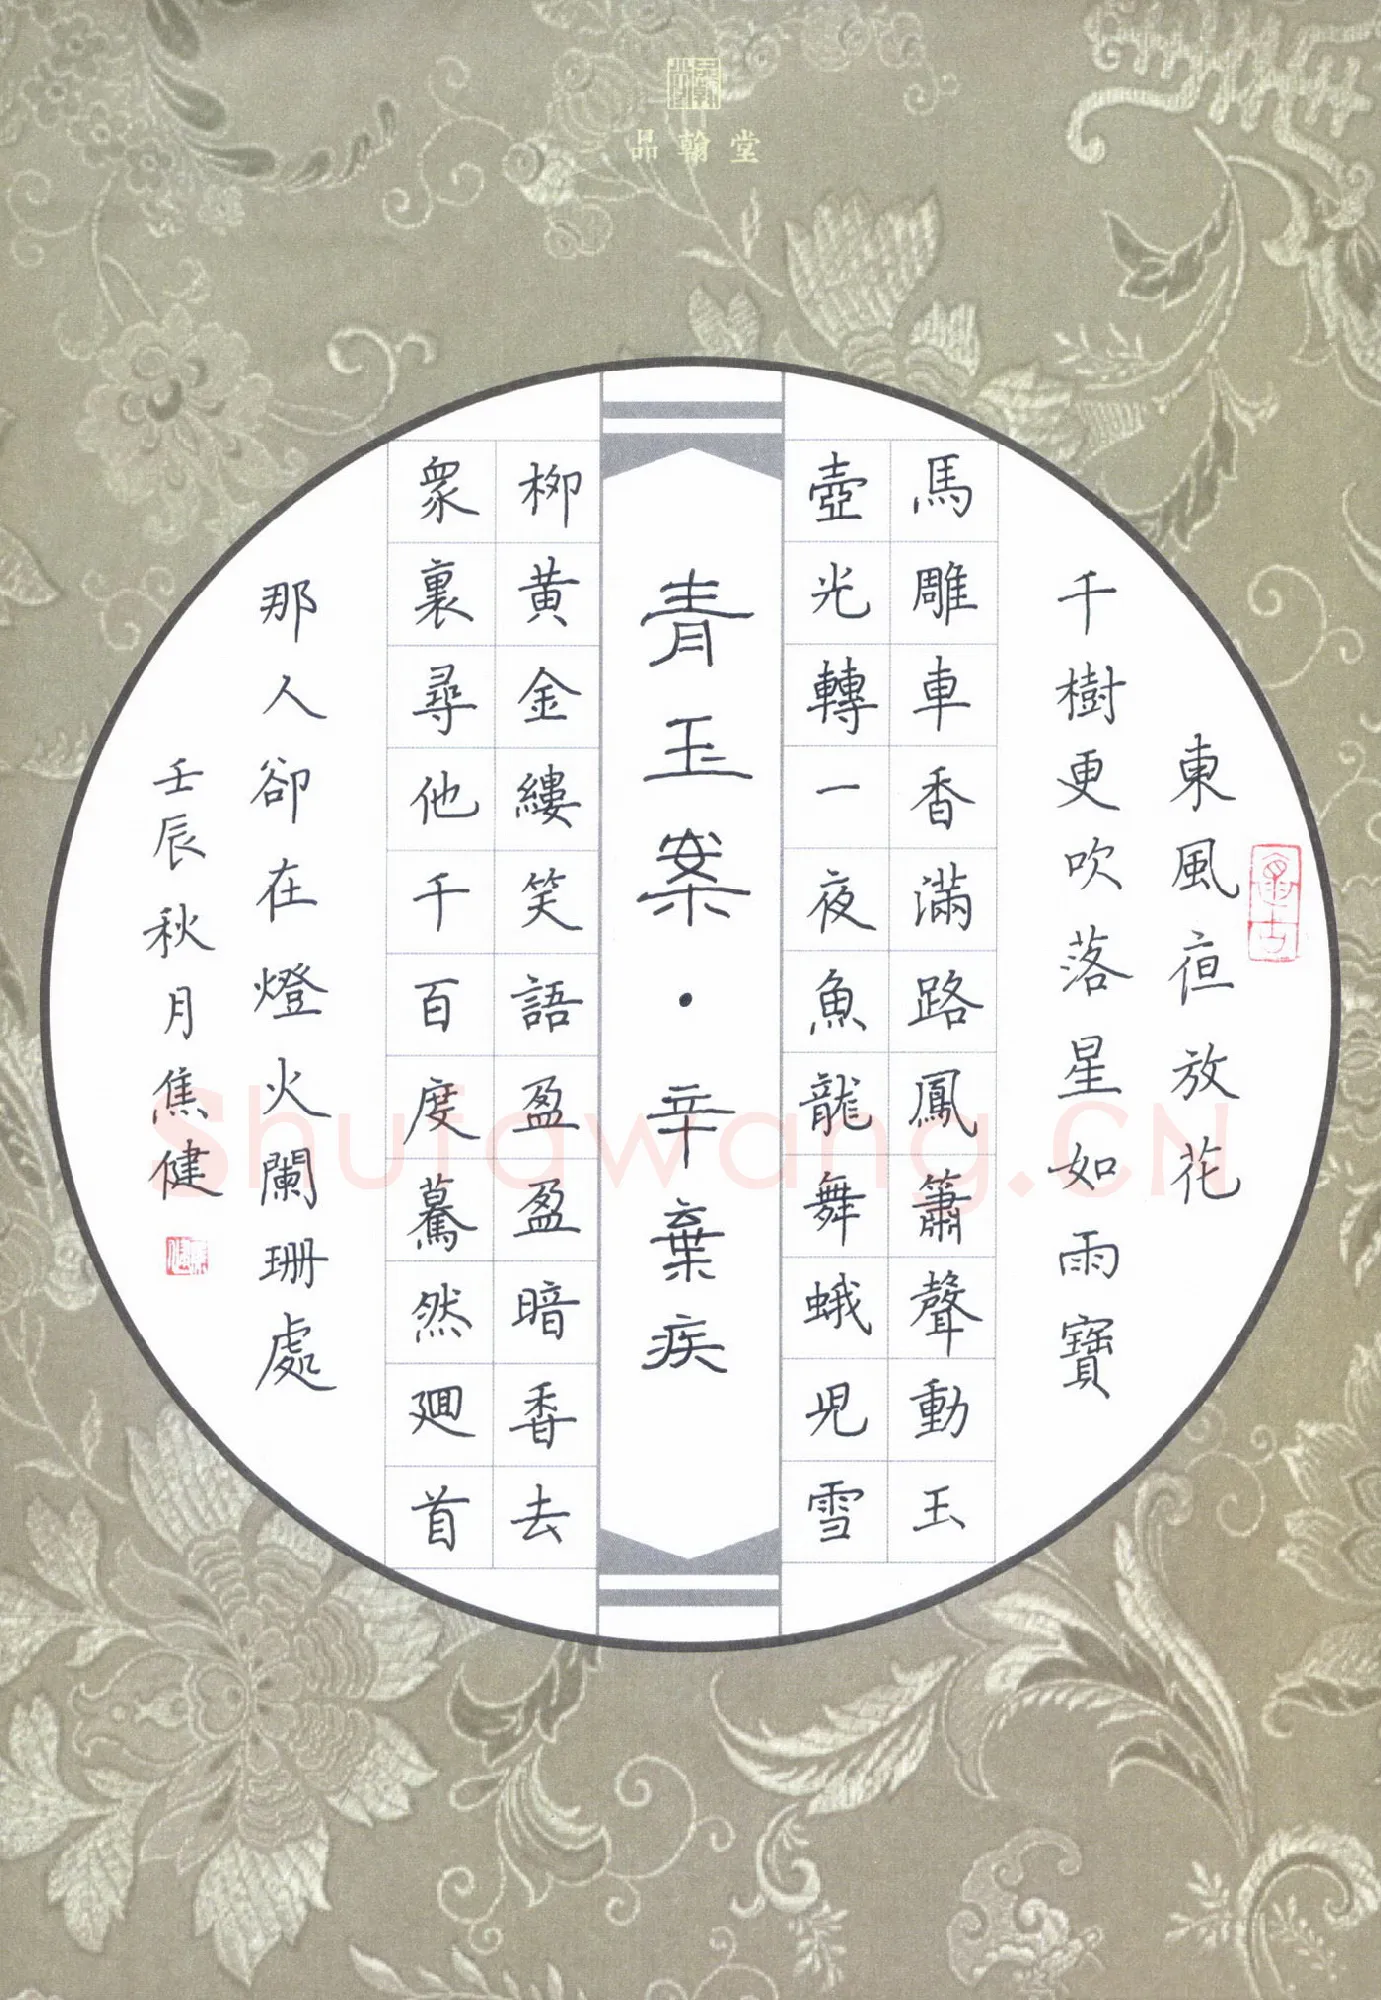 品翰堂
東風亱放花
千樹更吹落星如雨寶
馬雕車香滿路鳳簫聲動玉
壺光轉一夜魚龍舞蛾児雪
青玉案·辛棄疾
柳黄金縷笑語盈盈暗香去
衆裏尋他千百度驀然廻首
那人卻在燈火闌珊處
壬辰秋月焦健
Shufawang.CN